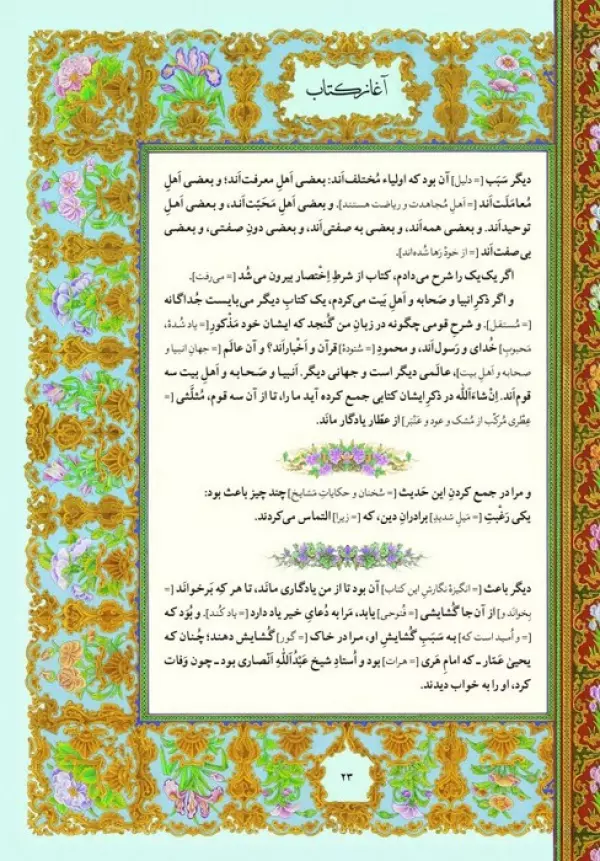 آغاز کتاب
دیگر سَبَب [= دلیل] آن بود که اولیاء مُختلف‌اَند: بعضی اَهلِ معرفت‌اَند؛ و بعضی اَهلِ
مُعامَلَت‌اَند [= اَهلِ مُجاهدت و ریاضت هستند]. و بعضی اَهلِ مَحَبَت‌اَند، و بعضی اَهلِ
توحیداَند. و بعضی همه‌اَند، و بعضی به صفتی‌اَند، و بعضی دونِ صفتی، و بعضی
بی‌صفت‌اَند [= از خودْ رَها شُده‌اند].
اگر یک‌یک را شرح می‌دادم، کتاب از شرطِ اِخْتصار بیرون می‌شُد [= می‌رفت].
و اگر ذکرِ انبیا و صَحابه و اَهلِ بَیت می‌کردم، یک کتابِ دیگر می‌بایست جُداگانه
[= مُستقل]. و شرحِ قومی چگونه در زبانِ من گُنجد که ایشان خود مَذْکورِ [= یاد شُدهٔ،
محبوبِ] خُدای و رَسول‌اَند، و محمودِ [= ستودهٔ] قرآن و اَخْباراَند؟ و آن عالَم [= جهانِ انبیا و
صحابه و اَهلِ بیت]، عالَمی دیگر است و جهانی دیگر. اَنبیا و صَحابه و اَهلِ بیت سه
قوم‌اَند. اِنْ‌شاءَاللّٰه در ذکرِ ایشان کتابی جمع کرده آید ما را، تا از آن سه قوم، مُثلّثی [=
عِطْری مُرکّب از مُشک و عود و عَنْبَر] از عطّار یادگار مانَد.
و مرا در جمع کردنِ این حَدیث [= سُخنان و حکایاتِ مَشایخ] چند چیز باعث بود:
یکی رَغْبتِ [= مَیلِ شدیدِ] برادرانِ دین، که [= زیرا] التماس می‌کردند.
دیگر باعث [= انگیزهٔ نگارشِ این کتاب] آن بود تا از من یادگاری مانَد، تا هر که بَرخوانَد [=
بخوانَد و] از آن‌جا گُشایشی [= فُتوحی] یابد، مَرا به دُعایِ خیر یاد دارد [= یاد کُند]. و بُوَد که
[= و اُمید است که] به سَبَبِ گُشایشِ او، مرا در خاک [= گور] گُشایش دهند؛ چُنان که
یحییٰ عَمّار ـ که امامِ هَری [= هرات] بود و اُستادِ شیخ عَبْدُاللّٰهِ اَنْصاری بود ـ چون وَفات
کرد، او را به خواب دیدند.
۲۳